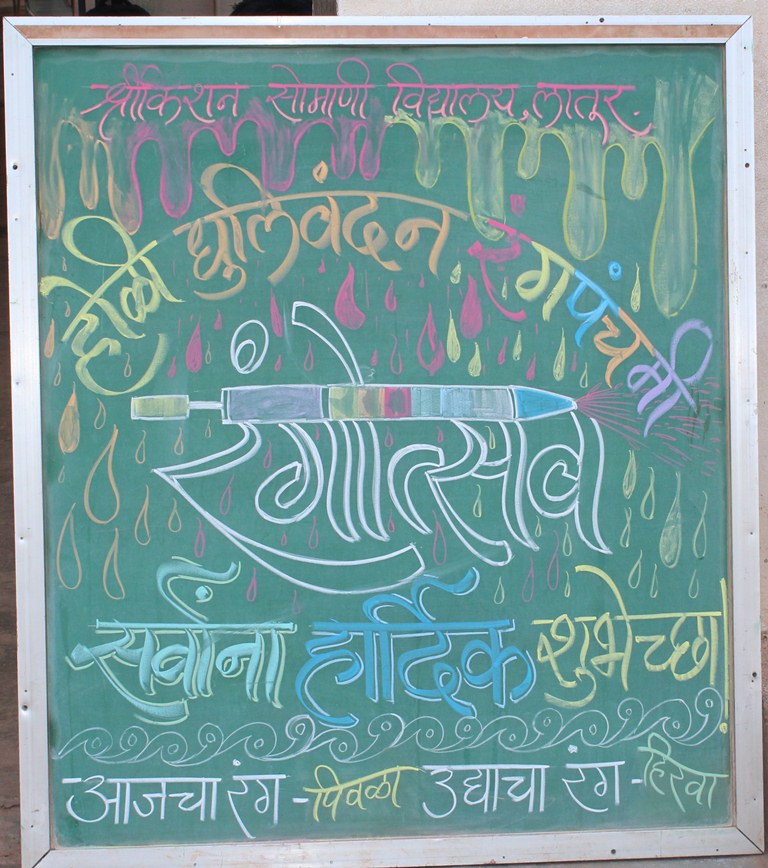 श्रीकिशन सोमाणी विद्यालय, लातूर.
होळी धुलिवंदन रंगपंचमी
रंगोत्सव
सर्वांना हार्दिक शुभेच्छा!
आजचा रंग - पिवळा उद्याचा रंग - हिरवा